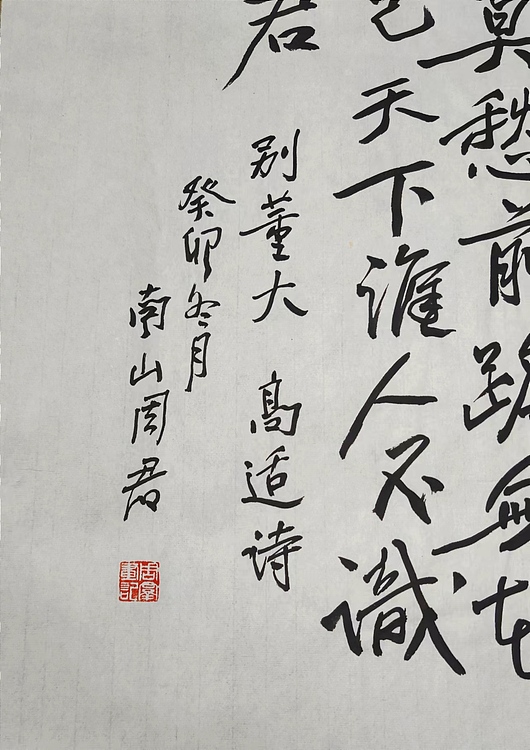 莫愁前路無知
己天下誰人不識
君
别董大 高适诗
癸卯冬月
南山周君